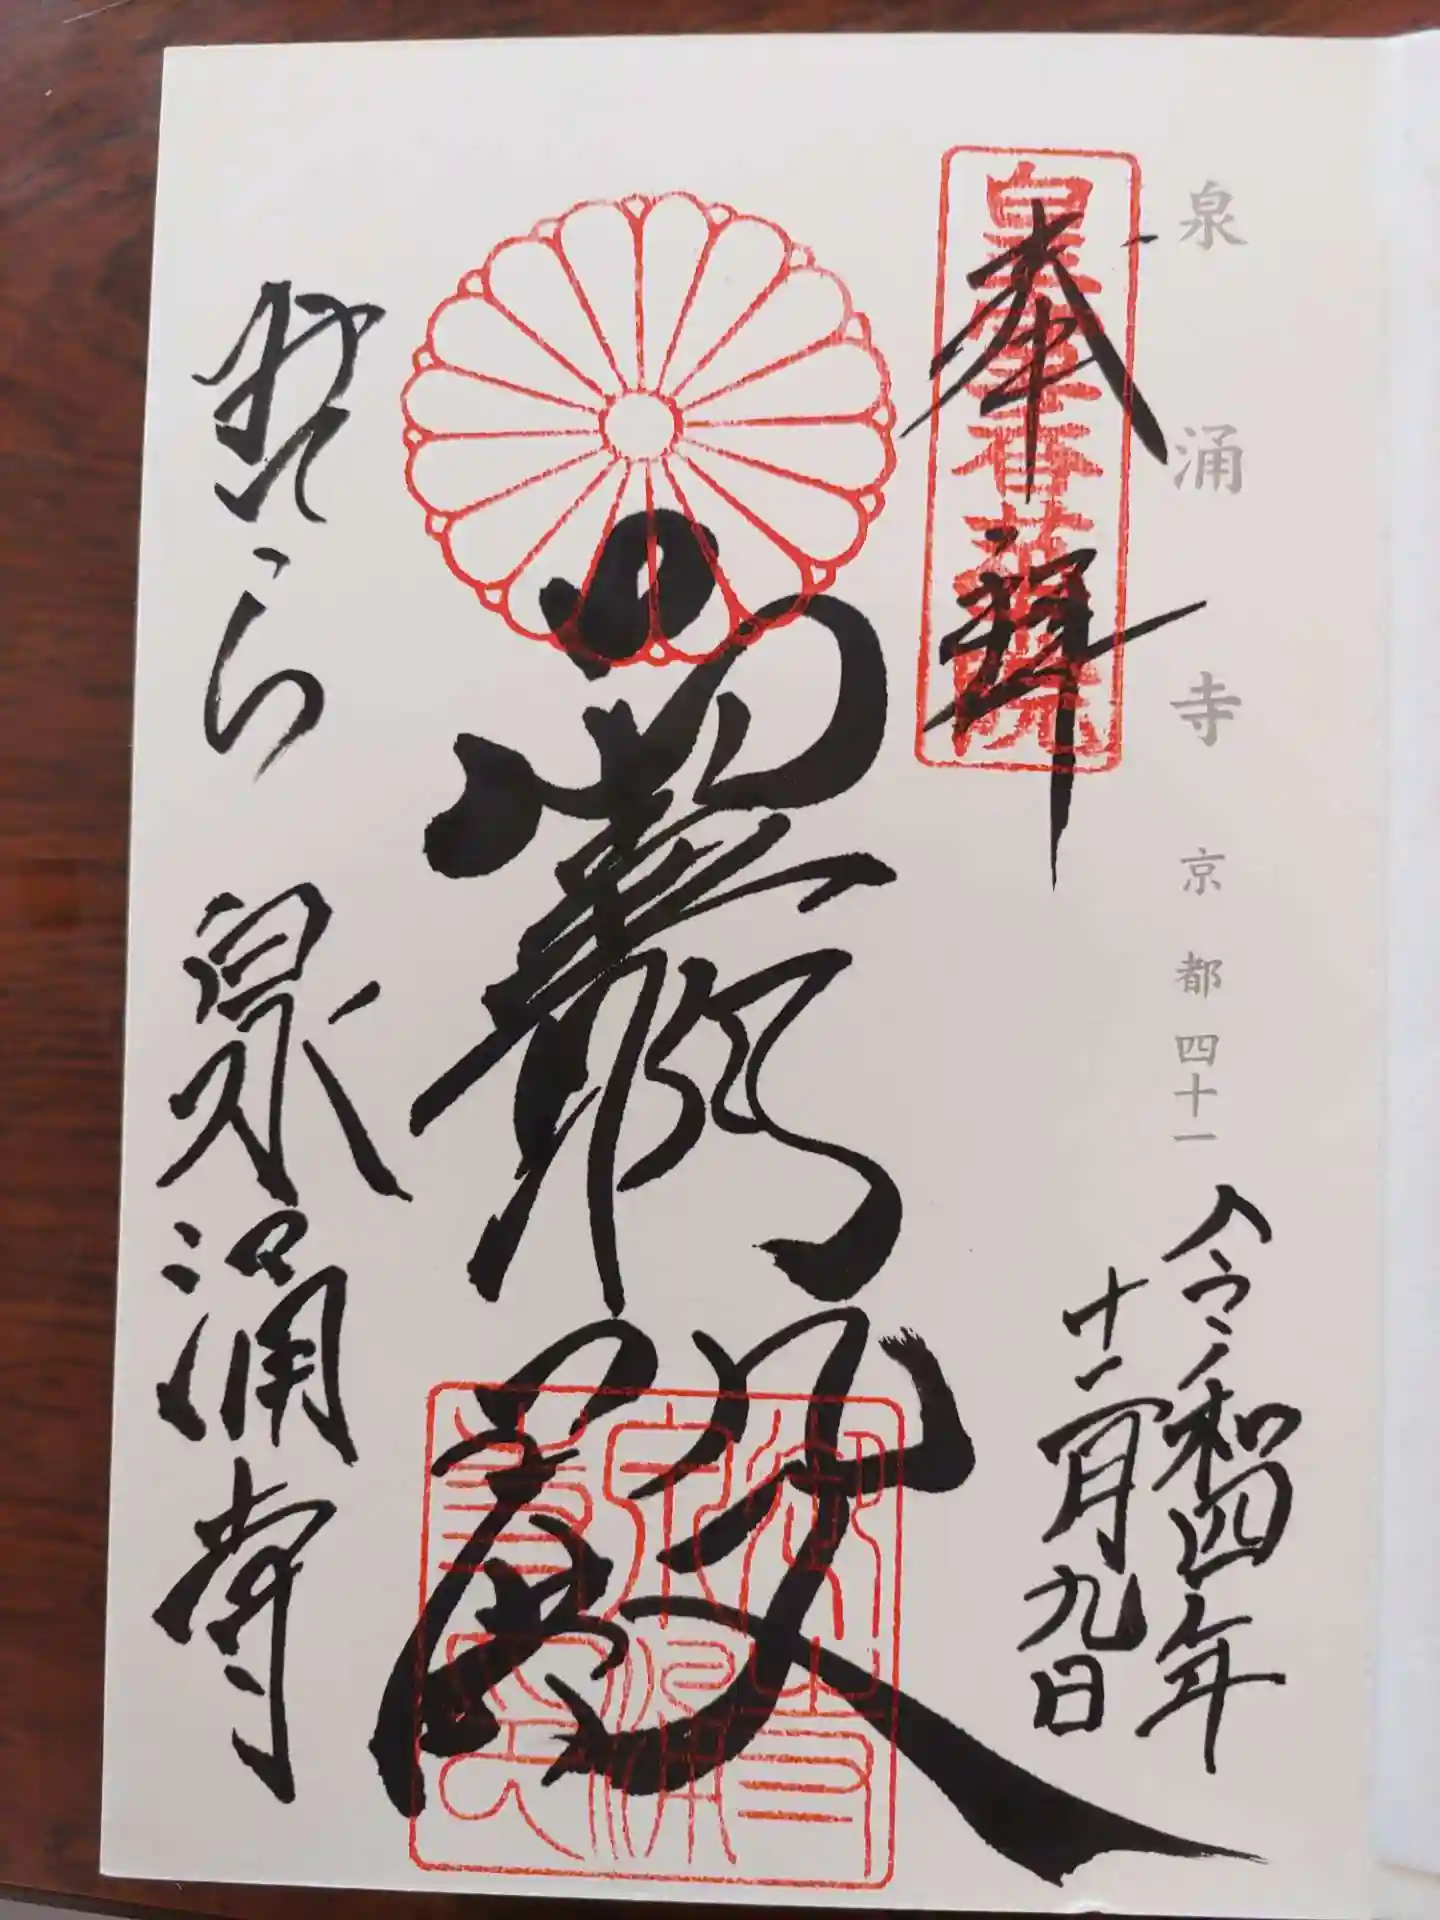 泉涌寺 京都四十一
令和四年
十二月九日
皇室香華院
奉拝
霊明殿
泉涌寺